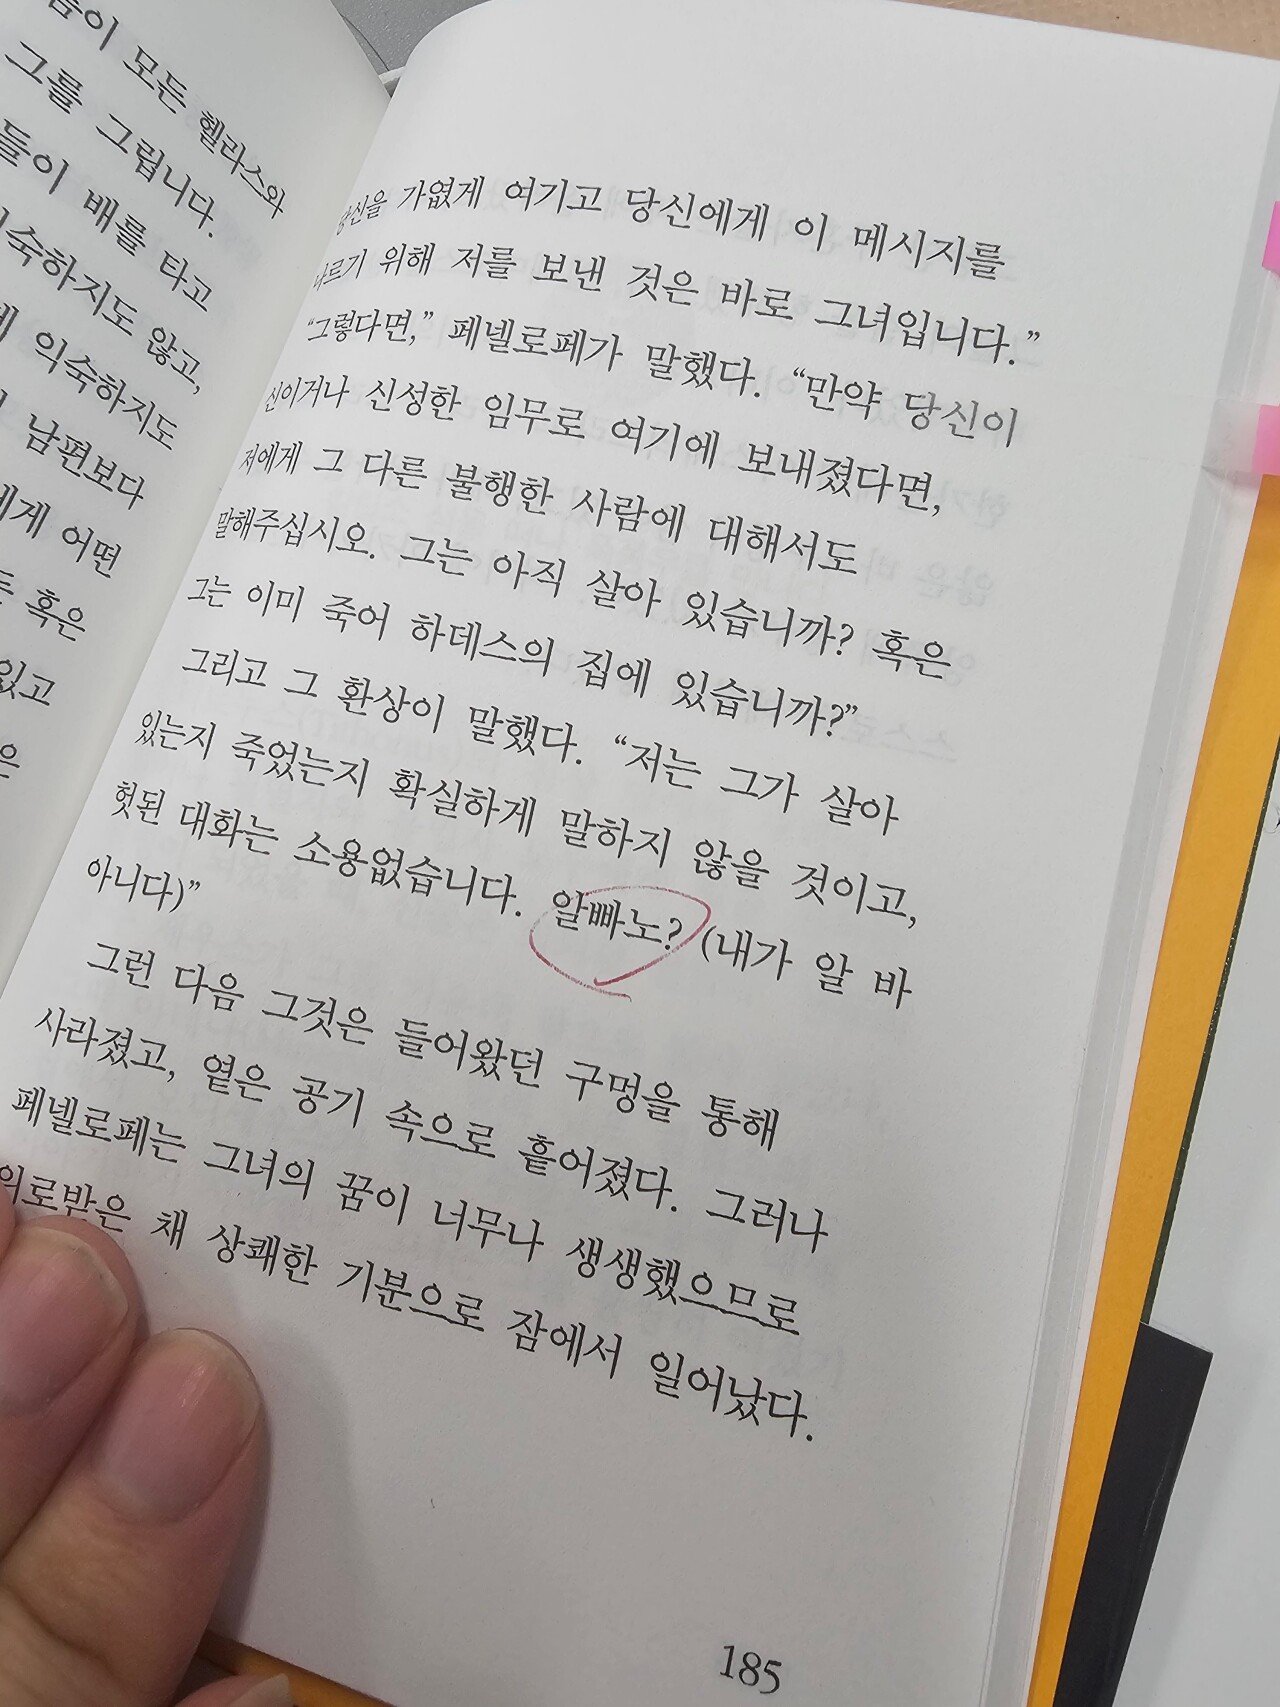 모든 헬라스와
그를 그립니다.
배를 타고
않고,
익숙하지도
남편보다
어떤
혹은
있고
은
당신을 가엾게 여기고 당신에게 이 메시지를
나르기 위해 저를 보낸 것은 바로 그녀입니다.”
“그렇다면,” 페넬로페가 말했다. “만약 당신이
신이거나 신성한 임무로 여기에 보내졌다면,
저에게 그 다른 불행한 사람에 대해서도
말해주십시오. 그는 아직 살아 있습니까? 혹은
그는 이미 죽어 하데스의 집에 있습니까?”
그리고 그 환상이 말했다. “저는 그가 살아
있는지 죽었는지 확실하게 말하지 않을 것이고,
헛된 대화는 소용없습니다. 알빠노? (내가 알 바
아니다)”
그런 다음 그것은 들어왔던 구멍을 통해
사라졌고, 옅은 공기 속으로 흩어졌다. 그러나
페넬로페는 그녀의 꿈이 너무나 생생했으므로
위로받은 채 상쾌한 기분으로 잠에서 일어났다.
185